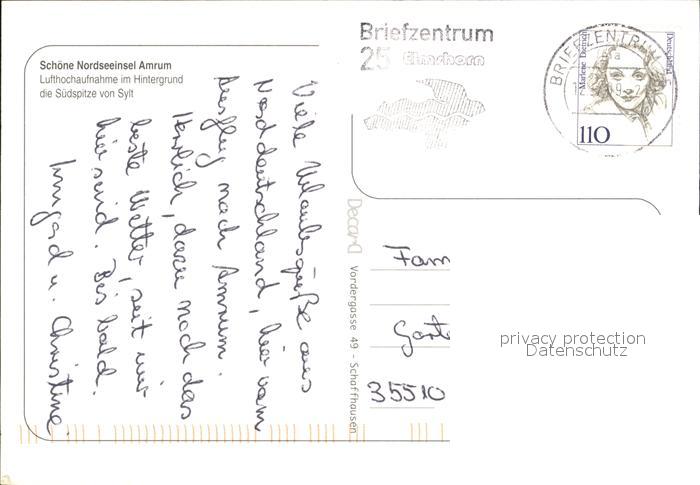 Schöne Nordseeinsel Amrum
Lufthochaufnahme im Hintergrund
die Südspitze von Sylt
Viele Urlaubsgrüße aus
Norddeutschland, hier vom
Ausflug nach Amrum.
Herrlich, dazu noch das
beste Wetter, seit wir
hier sind. Bis bald.
Irmgard u. Christine
Decora
Vordergasse 49 - Schaffhausen
Briefzentrum
25 Elmshorn
BRIEFZENTRUM
Marlene Dietrich
Deutschland
110
Fam
35510
privacy protection
Datenschutz